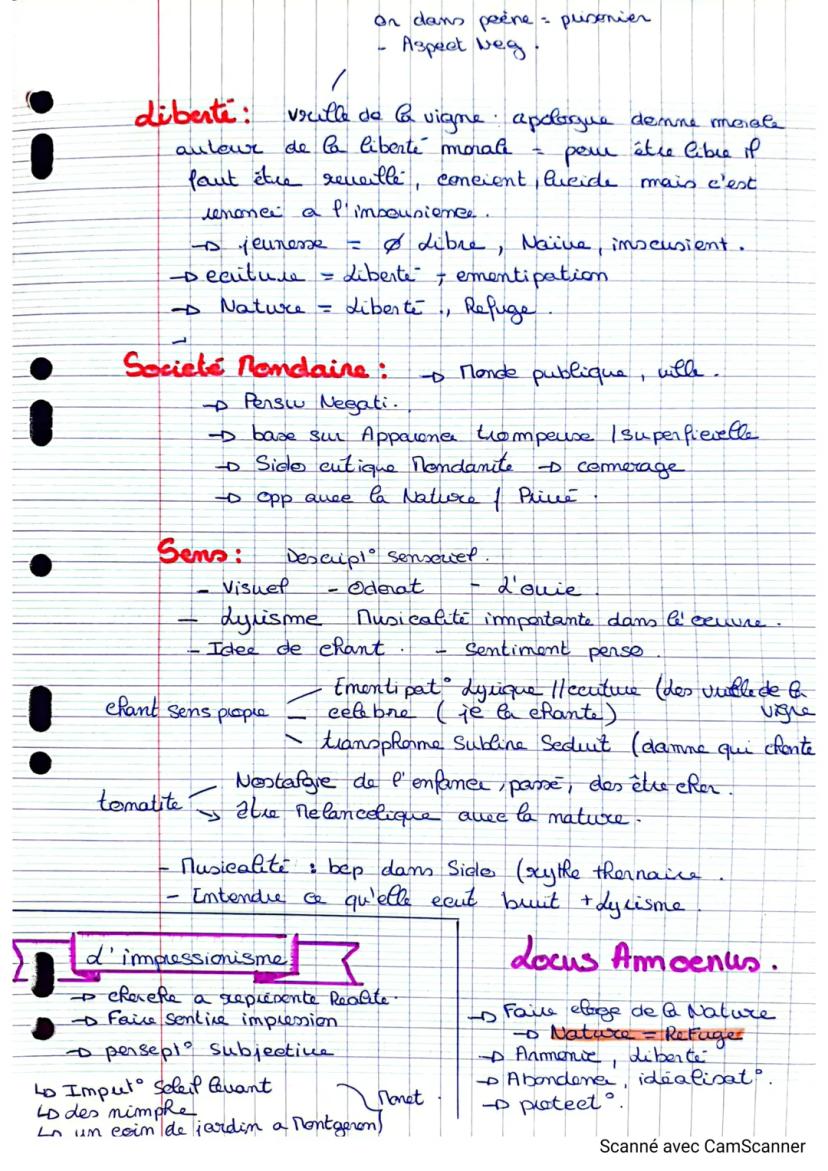 on dans peène = prisonier
- Aspect Neg.
Liberté : vrille de la vigne . apologue donne morale
auteur de la liberté morale = pour être libre il
faut être reveillé, concient, lucide mais c'est
renoncé a l'insousience.
→ jeunesse = Ø Libre, Naïve, inscusient.
→ ecriture = Liberté + ementipation
→ Nature = Liberté ., Refuge.
→
Societé Mondaine : → Monde publique, ville.
→ Persu Negati.
→ base sur Apparence trompeuse / superficielle
→ Sido critique Mondanité → comerage
→ opp avec la Nature / Privé.
Sens : Descript° sensoriel.
- Visuel - Odorat - L'ouie.
- Lyrisme Musicalité importante dans l'oeuvre.
- Idee de chant. - Sentiment perso.
Ementipat° Lyrique // ecriture (des vrille de la
vigne
chant sens propre - celebre ( je la chante)
transphorme Subline Seduit (damne qui chante
Nostalgie de l'enfance, passé, des être cher.
tomatite
être Melancolique avec la nature.
- Musicalité : bcp dans Sido (rythe thernaire.
- Entendre ce qu'elle ecrit bruit + Lyrisme.
L'impressionisme
→ cherche a représente Realite.
→ Faire sentire impression
→ persept° subjective
↳ Imput° Soleil Levant
↳ des nimphe
↳ un coin de jardin a Montgeron
Monet.
Locus Amoenus.
→ Faire eloge de la Nature
→ Nature = Refuge
→ Armonie, liberté
→ Abondance, idéalisat°.
→ protect°.
Scanné avec CamScanner